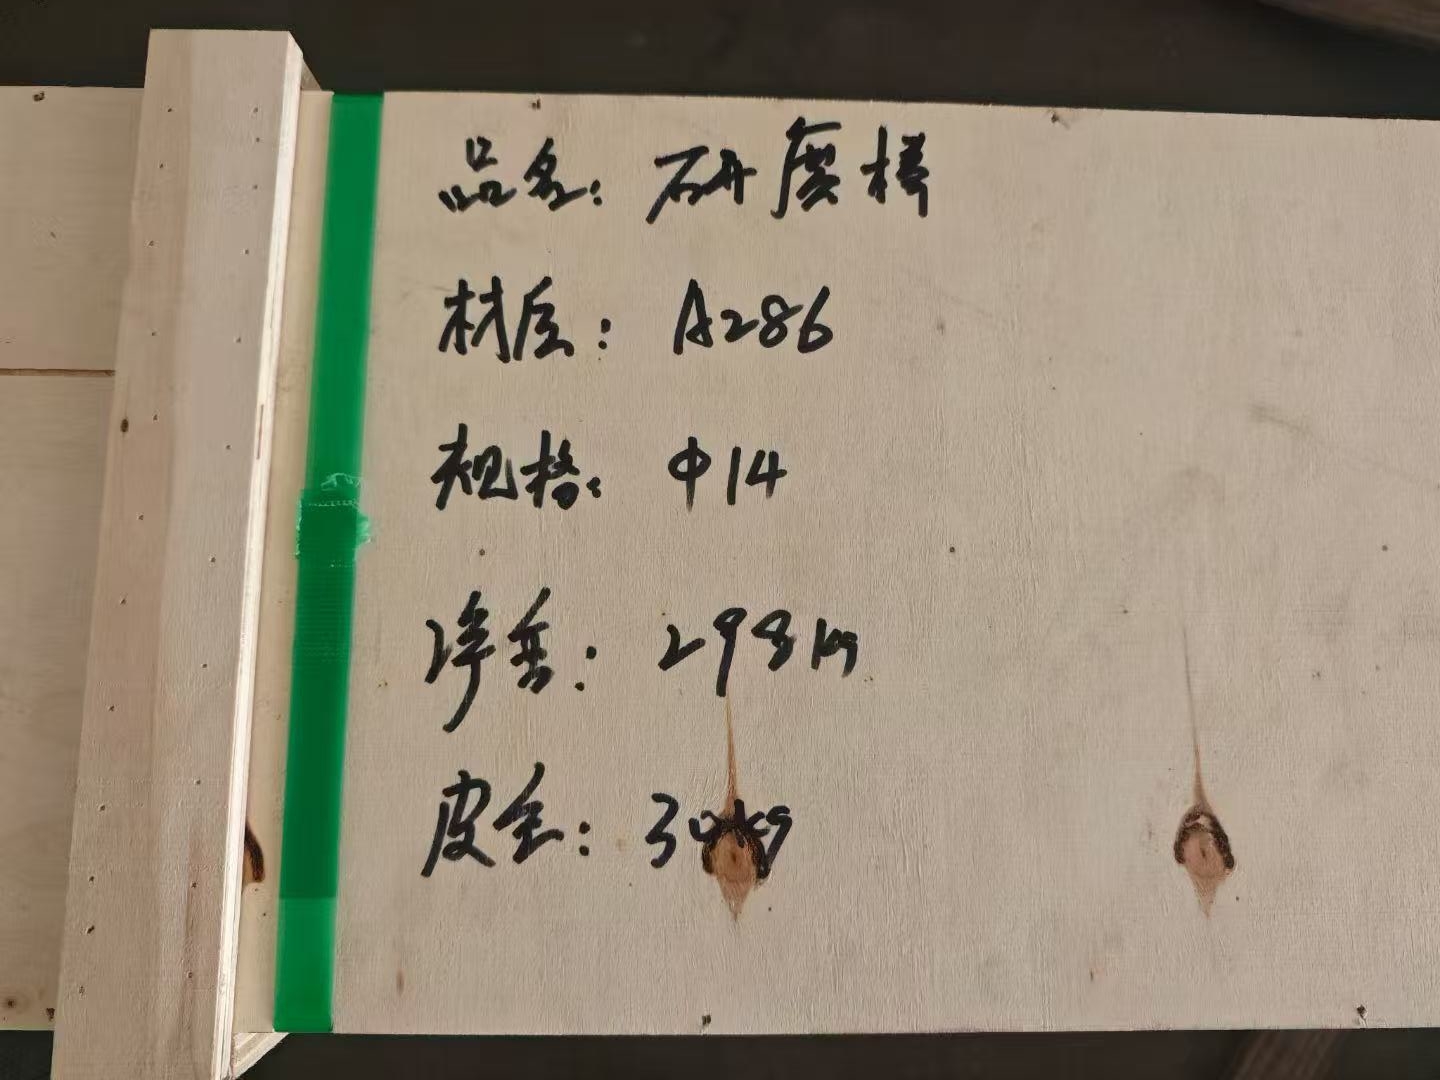 品名：研磨棒
材质：A286
规格：Φ14
净重：298kg
皮重：30kg